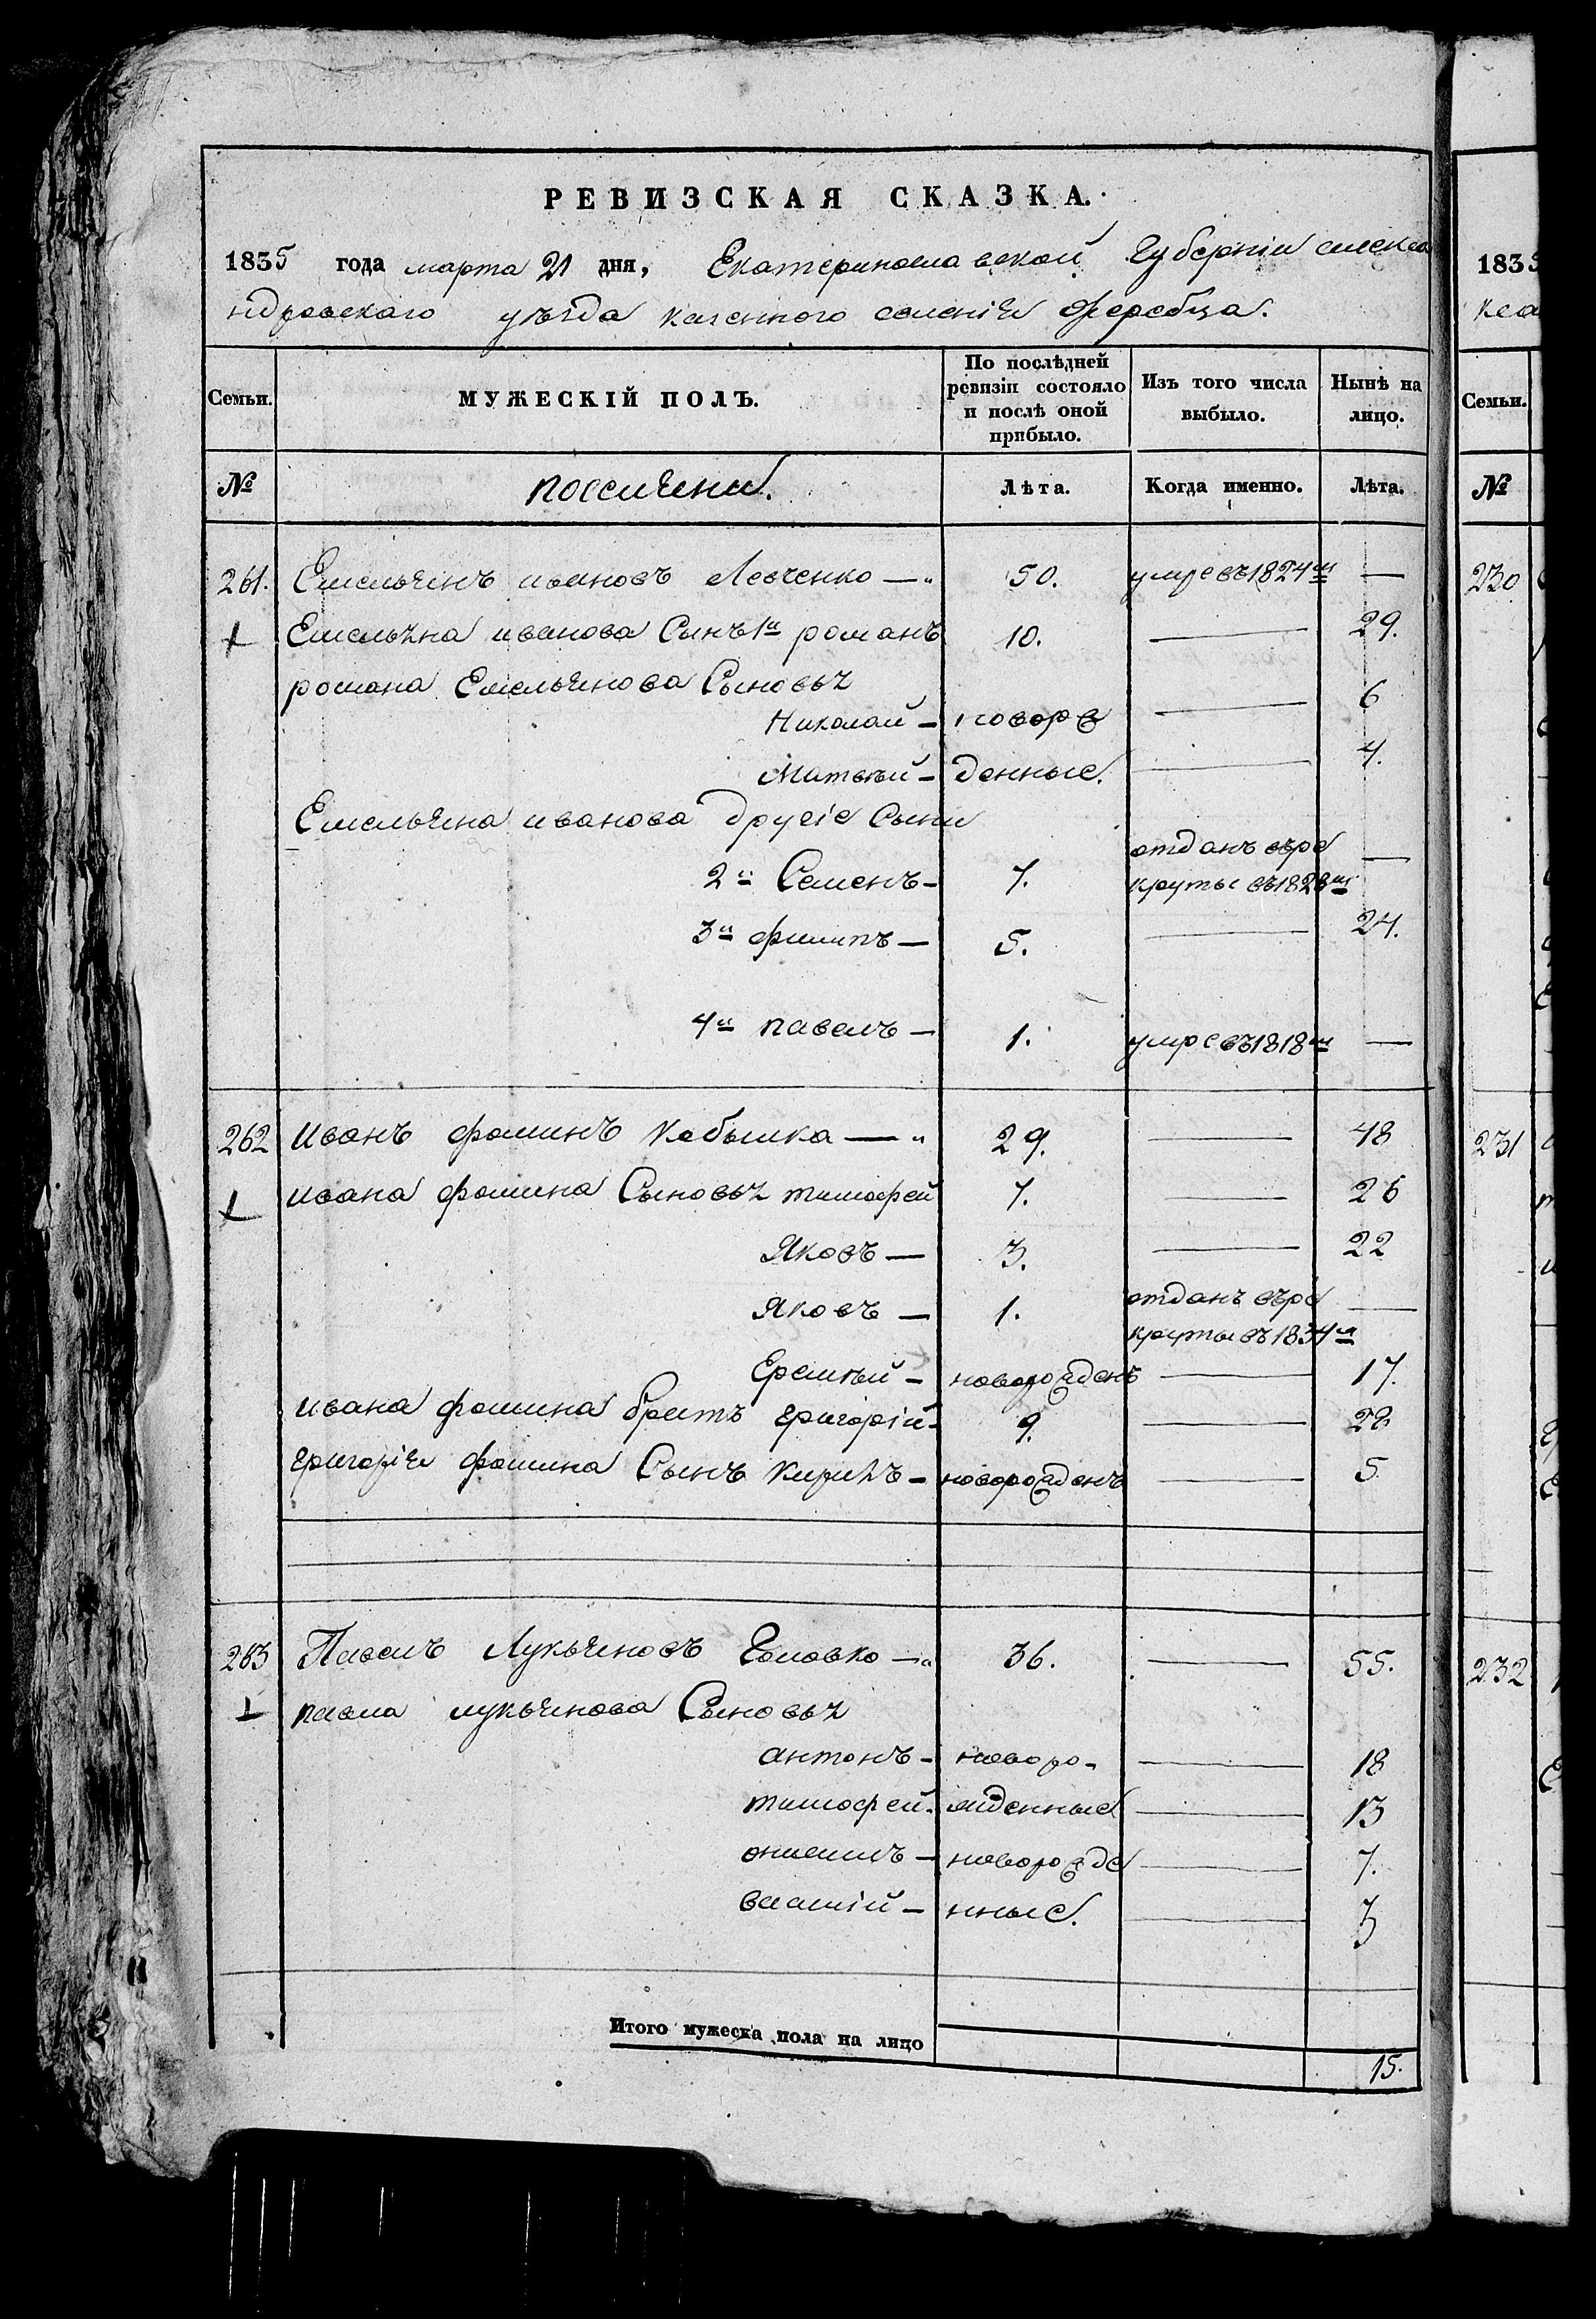 РЕВИЗСКАЯ СКАЗКА.
1835 года марта 21 дня, Екатеринославской Губерніи алекса
ндровского уѣзда казенного селенія Жеребца.
Семьи. МУЖЕСКІЙ ПОЛЪ. По послѣдней ревизіи состояло и послѣ оной прибыло. Изъ того числа выбыло. Нынѣ на лицо.
№ поселяни. Лѣта. Когда именно. Лѣта.
261. Емельянъ ивановъ Левченко — 50. умре въ 1824м —
Емельяна иванова Сынъ 1й романъ 10. — 29.
романа Емельянова Сыновья
Николай — новорож — 6
Матвѣй — денные. — 4.
Емельяна иванова другіе Сыни
2й Семенъ — 7. отданъ върекруты въ 1828м —
3й филипъ — 5. — 24.
4й павелъ — 1. умре въ 1818м —
262 Иванъ фоминъ Кобылка — 29. — 48
ивана фомина Сыновья тимофей 7. — 26
Яковъ — 3. — 22
Яковъ — 1. отданъ върекруты въ 1834м —
Еремѣй — новорожденъ — 17.
ивана фомина братъ григорій — 9. — 28
григорія фомина Сынъ Кирилъ — новорожденъ — 5
263 Павелъ Лукьяновъ Головко — 36. — 55.
павла лукьянова Сыновья
антонъ — новоро- — 18
тимофей — жденные — 13
онисимъ — новорожде — 7.
василій — нные. — 3
Итого мужеска пола на лицо 15.
1835
Семьи.
№
230
231
232